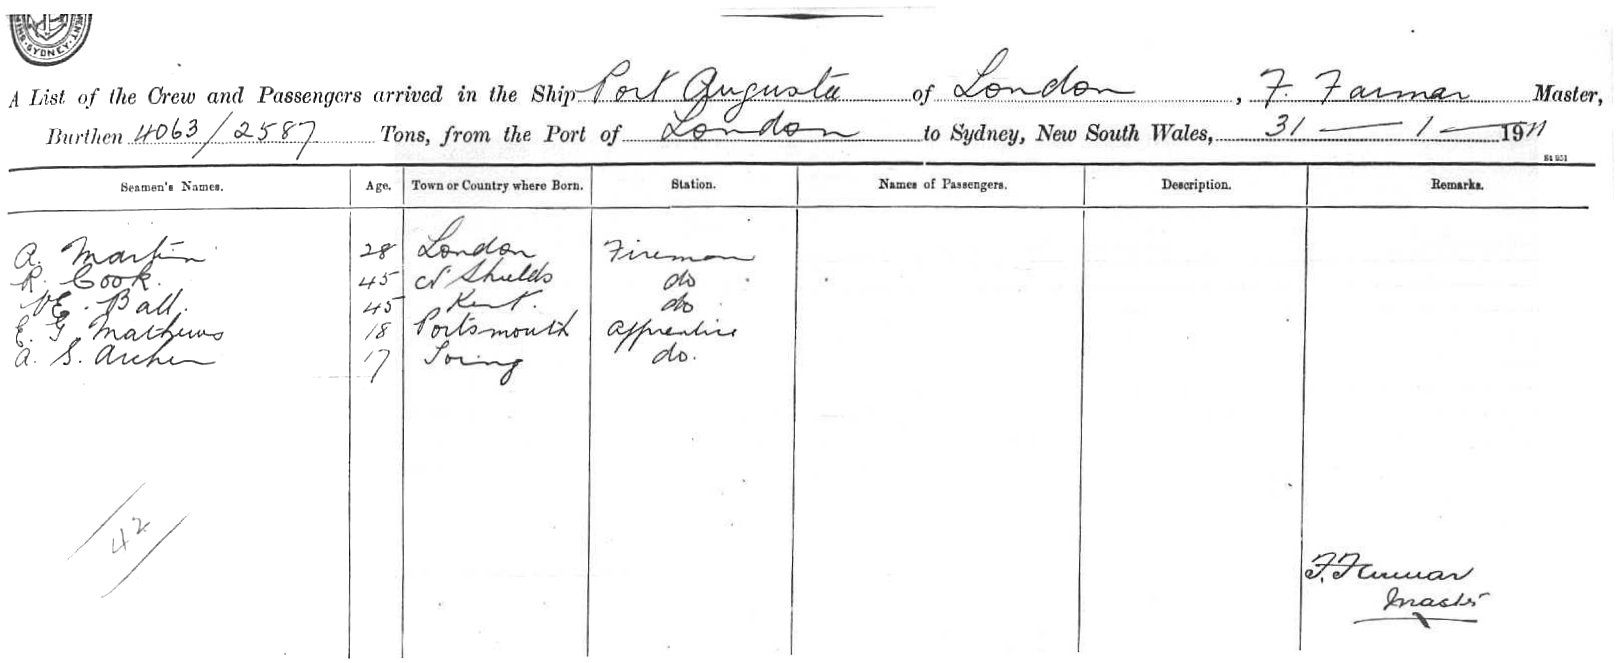 SYDNEY
A List of the Crew and Passengers arrived in the Ship Port Augusta of London, F. Farmar Master,
Burthen 4063/2587 Tons, from the Port of London to Sydney, New South Wales, 31 — 1 — 1911
St 951
Seamen's Names. Age. Town or Country where Born. Station. Names of Passengers. Description. Remarks.
A. Martin 28 London Fireman
R. Cook. 45 N Shields do
Ball. 45 Kent. do
E. G. Mathews 18 Portsmouth Apprentice
A. S. Archer 17 do.
42
F. Farmar
Master